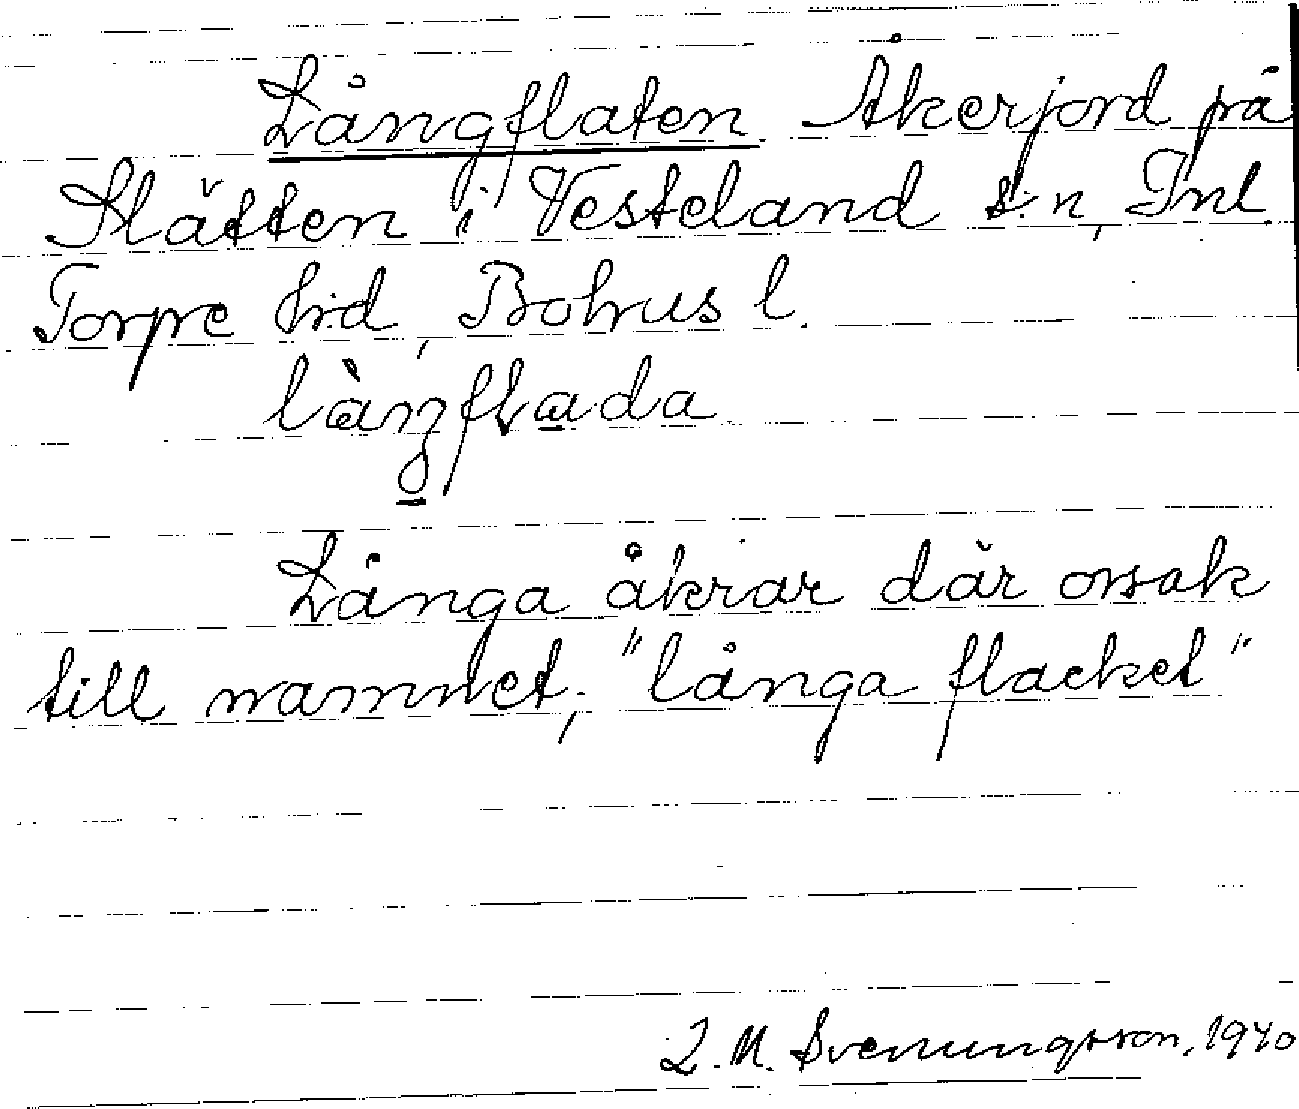 Långflaten. Åkerjord på
Slätten i Vesteland s:n, Inl.
Torpe hd, Bohus l.
làŋflada
Långa åkrar där orsak
till namnet; "långa flacket"
L. M. Svenungsson, 1940